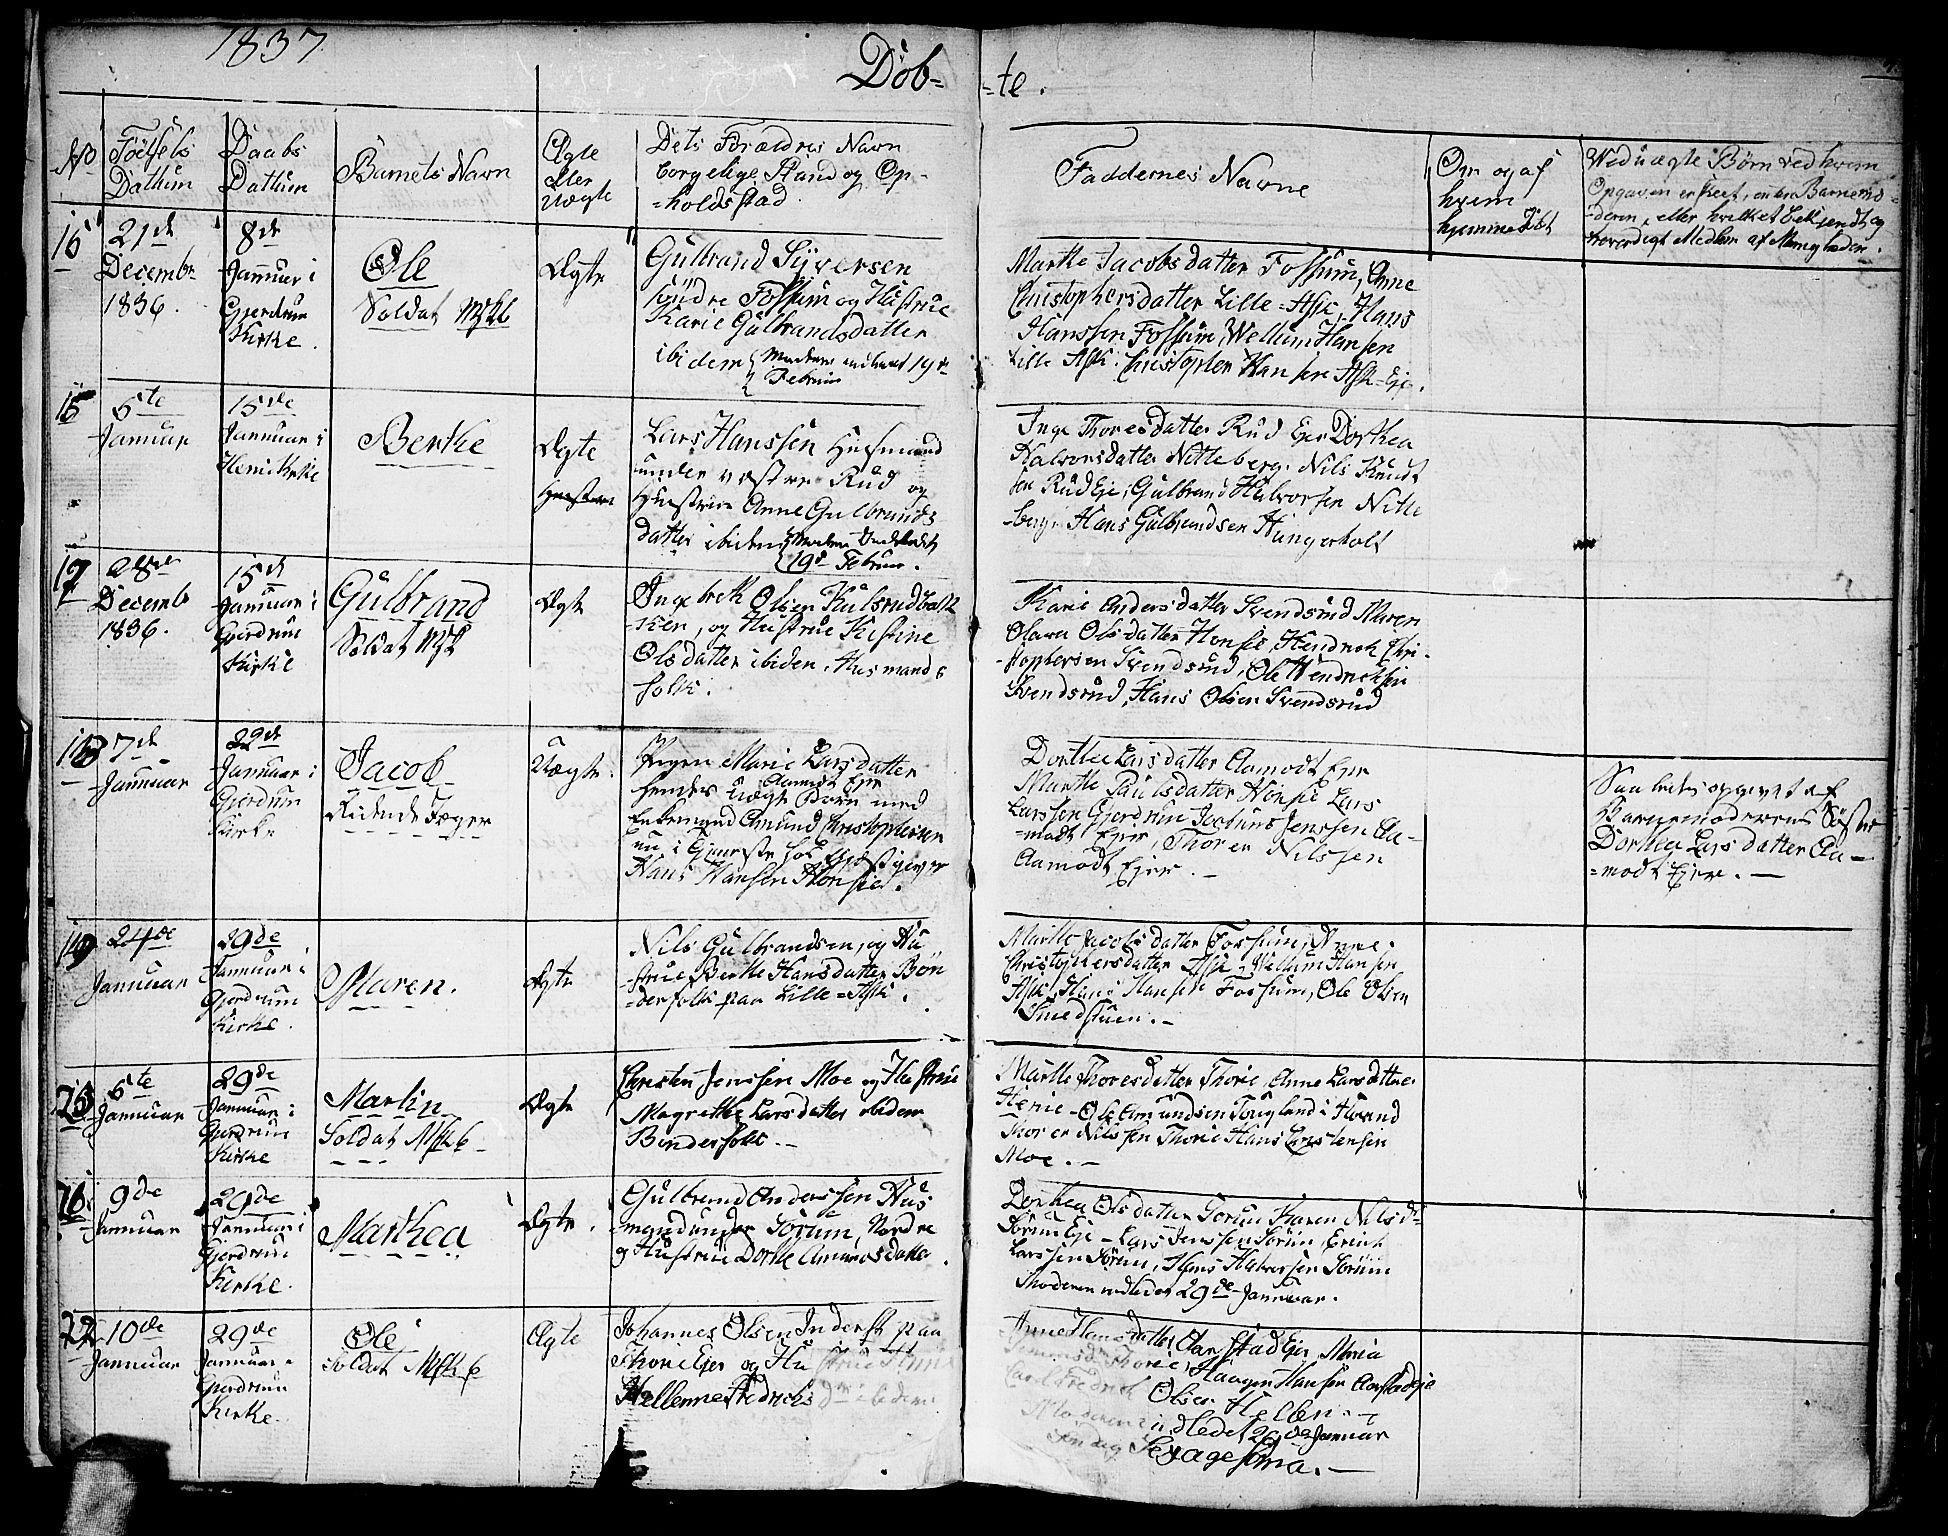 1837
Döb= =te.
No
Födsels
Dathum
Daabs
Dathum
Barnets Navn
Ægte
eller
Uægte
Dets Forældres Navn
borgelige Stand og Op-
=holdsstad.
Faddernes Navne
Om og af
hvem
hjemmedöbt
Ved uægte Börn ved hvem
Opgaven er skeet, enten Barnemo-
=deren, eller hvilket bekjendt og
troverdigt Medlem af Menigheden.
15
21de
Decembr
1836.
8de
Januar i
Gjerdrum
Kirke.
Ole
Soldat
Ægte
Gulbrand Syversen
söndre Fossum og Hustrue
Karie Gulbrandsdatter
ibidem
Februar
Marthe Jacobsdatter Fossum, Anne
Christophersdatter Lille-Ask, Hans
Hanssen Fossum, Wellum Hansen
Lille Ask. Christopher Hansen Ask-Eje.
6te
Januar
15de
Januar i
Kirke
Berthe
Ægte
Lars Hanssen Huusmand
under vestre Rud og
Hustrue Anne Gulbrands
datter ibidem Moderen indledet
19de Februar.
Inge Thoresdatter Rud Ejer Dorthea
Halvorsdatter Nitteberg. Nils Knud
sen Rud Eje, Gulbrand Halvorsen Nitte
berg, Hans Gulbrandsen Hungerholt
17
28de
Decemb
1836.
15de
Januar i
Gjerdrum
Kirke
Gulbrand
Soldat
Ægte
Ingebrek Olsen Kulsrudbak
ken, og Hustrue Kistine
Olsdatter ibiden. Husmands
folk.
Karie Andersdatter Svendsrud Maren
Olava Olsdatter Hönsie, Hendrick Chri-
-stophersen Svendsrud, Ole Hendricksen
Svendsrud, Hans Olsen Svendsrud
18
7de
Januar
22de
Januar i
Gjerdrum
Kirke
Jacob
Ridende Jæger
Uægte.
Pigen Marie Larsdatter
Aamodt Ejer
hendes uægte Barn med
Enkemand Amund Christophersen
nu i Tjeneste hos Gjæstgiver
Hans Hansen Hönsie.
Dorthea Larsdatter Aamodt Ejer
Marthe Paulsdatter Hönsie Lars
Larssen Gjerdrum Jenssen Aa-
=modt Ejer, Thorer Nilssen
Aamodt Ejer. -
Saaledes opgivet af
Barnemoderens Söster
Dorthea Larsdatter Aa-
=modt Ejer. -
19
24de
Januar
29de
Januar i
Gjerdrum
Kirke.
Maren.
Ægte
Nils Gulbrandsen, og Hu
strue Berthe Hansdatter Bön
=derfolk paa Lille=Ask.
Marthe Jacobsdatter Fossum, Anne
Christophersdatter Ask, Wellum Hansen
Ask, Hans Hansen Fossum, Ole Olsen
Smedstuen. -
20
6te
Januar
29de
Januar i
Gjerdrum
Kirke
Martin
Soldat
Ægte
Christen Jenssen Moe og Hustrue
Magrethe Larsdatter ibidem
Bönderfolk. -
Marthe Thoresdatter Thorie, Anne Larsdatter
Ole Amundsen
Thorer Nilssen Thorie Hans Christensen
Moe. -
9de
Januar
29de
Januar i
Gjerdrum
Kirke.
Marthea
Ægte.
Gulbrand Anderssen Hus
mand under Sörum, Nordre
og Hustrue Dorthe Amundsdatter.
Dorthea Olsdatter Sörum Karen Nilsd.
Sörum Eje - Lars Jenssen Sörum, Erick
Larssen Sörum, Hans Halvorsen Sörum
Moderen indledet 29de Januar.
22
10de
Januar
29de
Januar
Gjerdrum
Kirke.
Ole
Soldat
Ægte
Johannes Olsen Inderst paa
Thorie Ejer og Hustrue
Hellenne Fredrichs ibidem
Anne Hansdatter Aarstad Ejer, Maria
Thorie, Haagen Hansen
Carl Fredrich Olsen Hellen -
Moderen indledet 29de Januar
Söndag Sexagesima. -